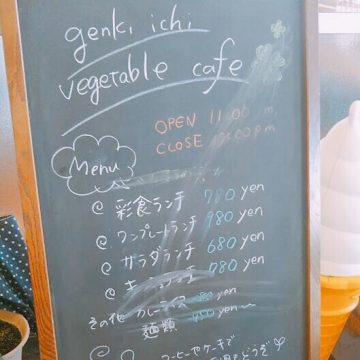 genki ichi
vegetable cafe
OPEN 11:00
CLOSE
Menu
@ 彩食ランチ 780 yen
@ ワンプレートランチ 980 yen
@ サラダランチ 680 yen
@ 780 yen
その他 カレーライス yen
麺類
コーヒーやケーキで